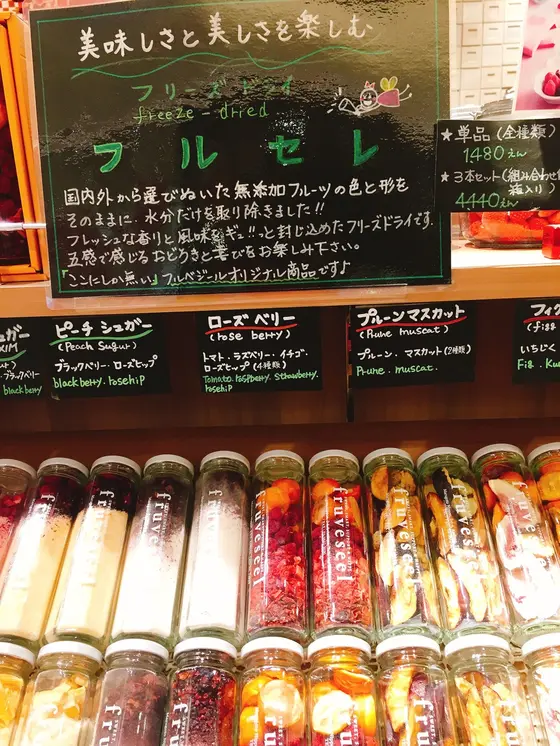 美味しさと美しさを楽しむ
フリーズドライ
freeze - dried
フルセレ
国内外から選びぬいた無添加フルーツの色と形を
そのままに、水分だけを取り除きました!!
フレッシュな香りと風味をギュ!!っと封じ込めたフリーズドライです.
五感で感じるおどろきと喜びをお楽しみ下さい。
「ここにしか無い」フルベジールオリジナル商品です♪
★単品(全種類)
1480えん
★3本セット(組み合わせ
箱入り)
4440えん
ガー
ブラックベリー
blackberry
ピーチ シュガー
(Peach Sugar)
ブラックベリー・ローズヒップ
blackberry. rosehip
ローズ ベリー
(rose berry)
トマト・ラズベリー・イチゴ・
ローズヒップ(4種類)
Tomato. raspberry. strawberry.
rosehip
プルーンマスカット
(Prune muscat)
プルーン・マスカット(2種類)
Prune. muscat.
フィグ
(figg
いちじく
Fig. Ku
fruveseel
fruveseel
fruveseel
fruveseel